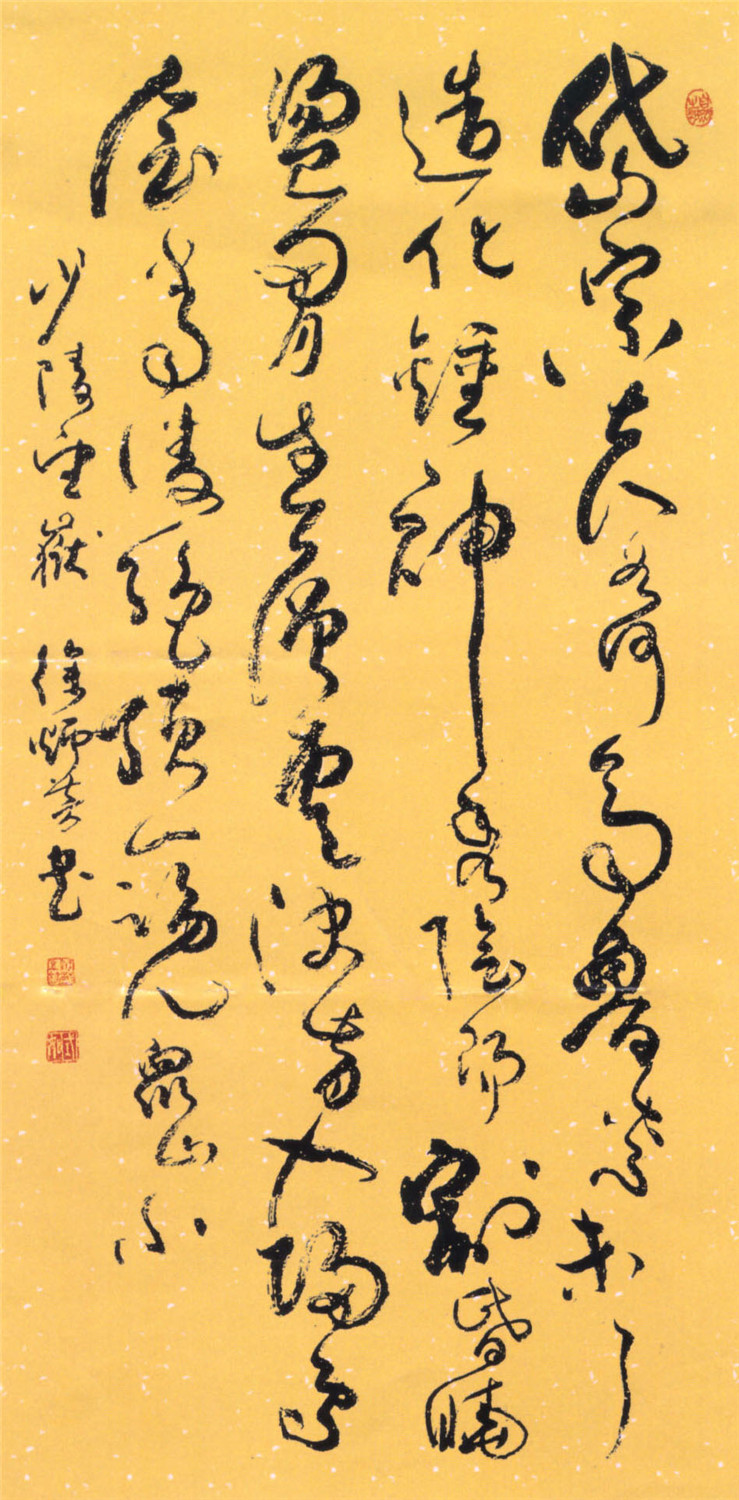 岱宗夫如何齊魯青未了
造化鍾神秀陰陽割昏曉
盪胸生層雲決眥入歸鳥
會當凌絕頂一覽眾山小
少陵望嶽 徐書